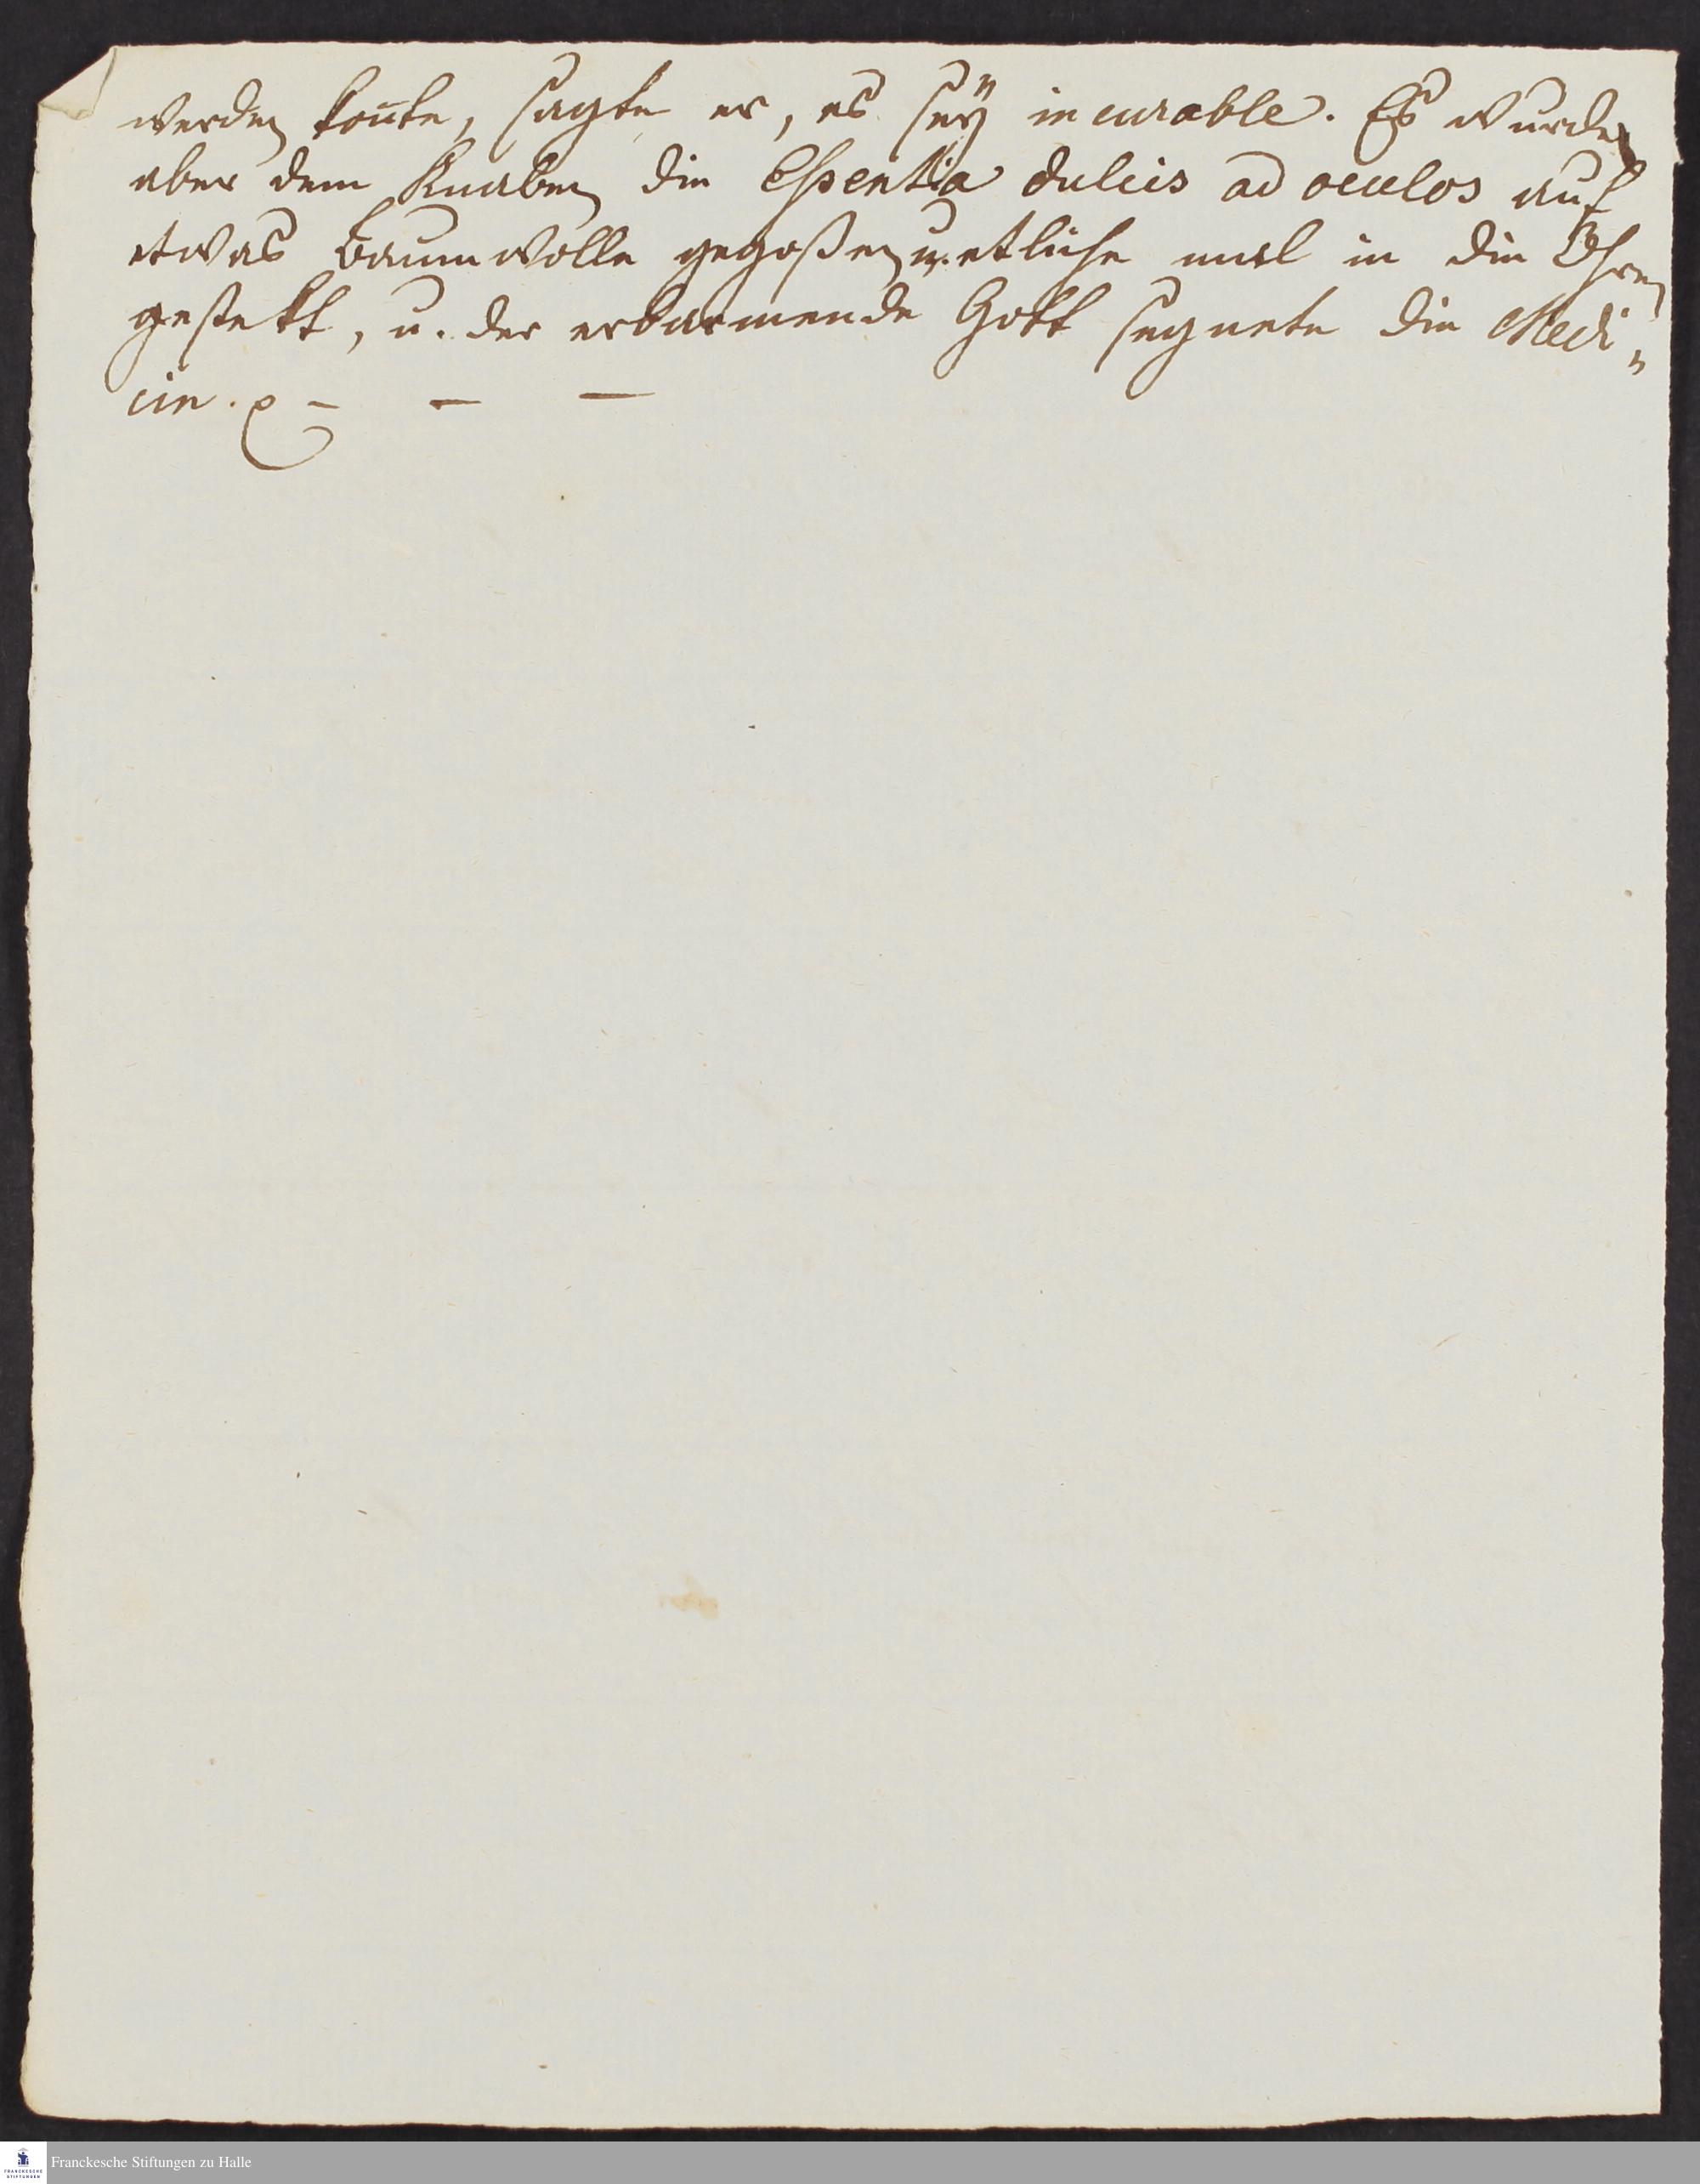 werden kon̄te, sagte er, es seÿ incurable. Es wurde
aber dem Knaben die Essentia dulcis ad oculos auf
etwas Baumwolle gegoßen u. etliche mal in die Ohren
gestekt, u. der erbarmende Gott segnete die Medi„
cin. – – –
FRANCKESCHE STIFTUNGEN
Franckesche Stiftungen zu Halle